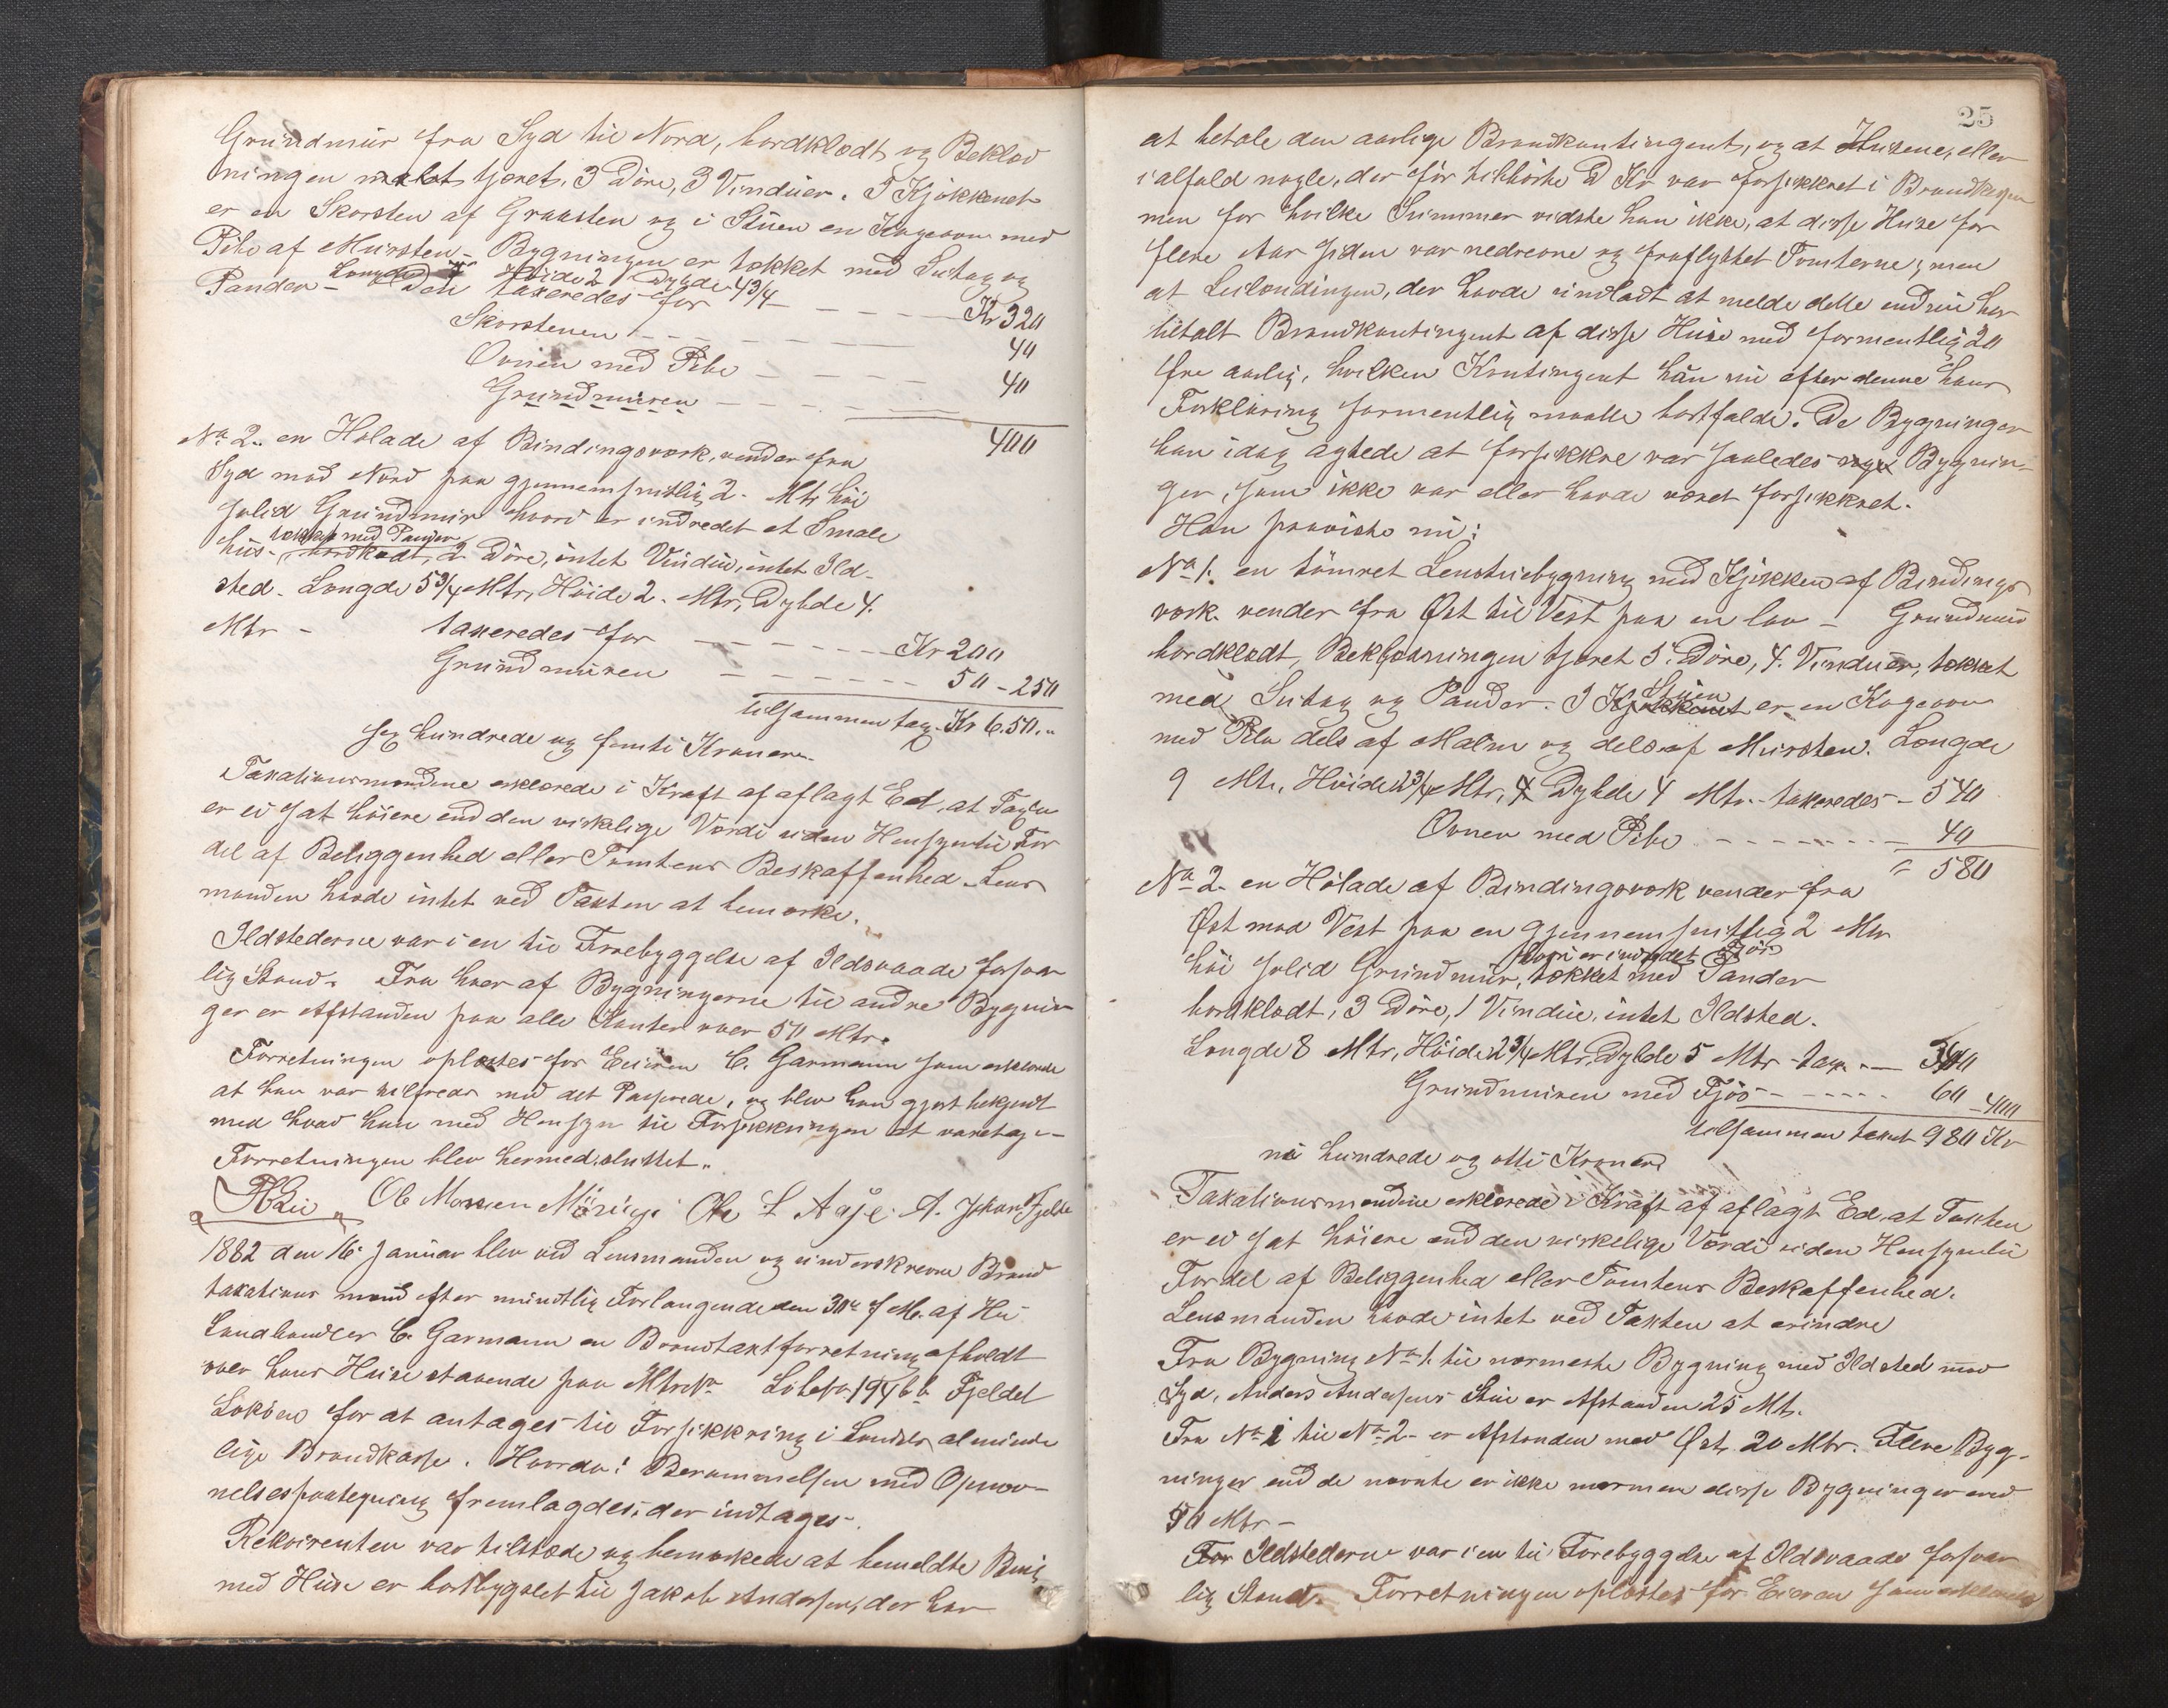 Grundmur fra Syd til Nord, bordklædt og Beklæd
ningen malet tjæret, 3 Döre, 3 Vinduer. I Kjökkenet
er en Skorsten af Graasten og i Stuen en Kogeovn med
Pibe af Mursten – Bygningen er tækket med Sutag og
Længde Höide 2 Dybde 4¾
Pander – Den taxeredes for – Kr 320
Skorstenen – – 40
Ovnen med Pibe – 40
Grundmuren –
400
No 2. en Hölade af Bindingsværk, vender fra
Syd mod Nord paa gjennemsnitlig 2. Mtr höi
solid Grundmur hvori er indredet et Smale
tækket med Pander
hus – bordklædt, 2 Döre, intet Vindue, intet Ild-
sted. Længde 5¾ Mtr, Höide 2. Mtr, Dybde 4.
Mtr – taxeredes for – Kr 200
Grundmuren – 50 – 250
tilsammen tax. Kr 650.
sex hundrede og femti Kroner
Taxationsmændene erklærede i Kraft af aflagt Ed, at Taxten
er ei sat höiere end den virkelige Værdi uden Hensyn til For
del af Beliggenhed eller Tomtens Beskaffenhed. Lens
manden havde intet ved Taxten at bemærke.
Ildstederne var i en til Forebyggelse af Ildsvaade forsvar
lig Stand. Fra hver af Bygningerne til andre Bygnin
ger er Afstanden paa alle Kanter over 50 Mtr.
Forretningen oplæstes for Eieren C. Garmann som erklærede
at han var tilfreds med det Passerede, og blev han gjort bekjendt
med hvad han med Hensyn til Forsikkringen at varetage –
Forretningen blev hermed sluttet.
Ole Monsen Ole L Aase A. Johan Fjelde
1882 den 16. Januar blev ved Lensmanden og underskrevne Brand
taxations mænd efter mundtlig Forlangende den 30te f. M. af Hr
Landhandler C. Garmann en Brandtaxtforretning afholdt
over hans Huse staaende paa Mtr No Löbeno 194 b b Fjeldet
Loköen for at antages til Forsikkring i Landets alminde
lige Brandkasse. Hvorda: Berammelsen med Opnæv-
nelsespaategning fremlagdes, der indtages –
Rekvirenten var tilstede og bemærkede at bemeldte Brug
med Huse er bortbygslet til Jakob Andersen, der har
25
at betale den aarlige Brandkontingent, og at Husene, eller
ialfald nogle, der för tilhörte D Kr var forsikkret i Brandkassen
men for hvilke Summer vidste han ikke, at disse Huse for
flere Aar siden var nedrevne og fraflyttet Tomterne; men
at Leilændingen, der havde undladt at melde dette endnu har
betalt Brandkontingent af disse Huse med formentlig 20
Öre aarlig, hvilken Kontingent han nu efter denne hans
Forklaring formentlig maatte bortfalde. De Bygninger
han idag agtede at forsikkre var saaledes nye Bygnin-
ger, som ikke var eller havde været forsikkret.
Han paaviste nu:
No 1. en tömret Lenstuebygning med Kjökken af Bindings
værk. vender fra Öst til Vest paa en lav – Grundmur
bordklædt, Beklædningen tjæret 5. Döre, 4. Vinduer, tækket
med Sutag og Pander. I Kjökkenet Stuen er en Kogeovn
med Pibe dels af Malm og dels af Mursten. Længde
9 Mtr., Höide 2¾ Mtr, Dybde 4 Mtr. taxeredes – 540
Ovnen med Pibe – 40
580
No 2. en Hölade af Bindingsværk vender fra
Öst mod Vest paa en gjennemsnitlig 2 Mtr
hvori er indredet Fjös
höi solid Grundmur, tækket med Pander
bordklædt, 3 Döre, 1 Vindue, intet Ildsted.
Længde 8 Mtr, Höide 2¾ Mtr, Dybde 5 Mtr tax. – 340
Grundmuren med Fjös – 60 – 400
tilsammen taxt 980 Kr
ni hundrede og otti Kroner
Taxationsmændene erklærede i Kraft af aflagt Ed, at Taxten
er ei sat höiere end den virkelige Værdi uden Hensyn til
Fordel af Beliggenhed eller Tomtens Beskaffenhed.
Lensmanden havde intet ved Taxten at erindre
Fra Bygning No 1. til nærmeste Bygning med Ildsted mod
Syd, Anders Andersens Stue er Afstanden 25 Mtr.
Fra No 1 til No 2 – er Afstanden mod Öst 20 Mtr. Flere Byg-
ninger end de nævnte er ikke nærmere disse Bygninger end
50 Mtr –
For Ildstederne var i en til Forebyggelse af Ildsvaade forsvar
lig Stand. Forretningen oplæstes for Eieren som erklærede